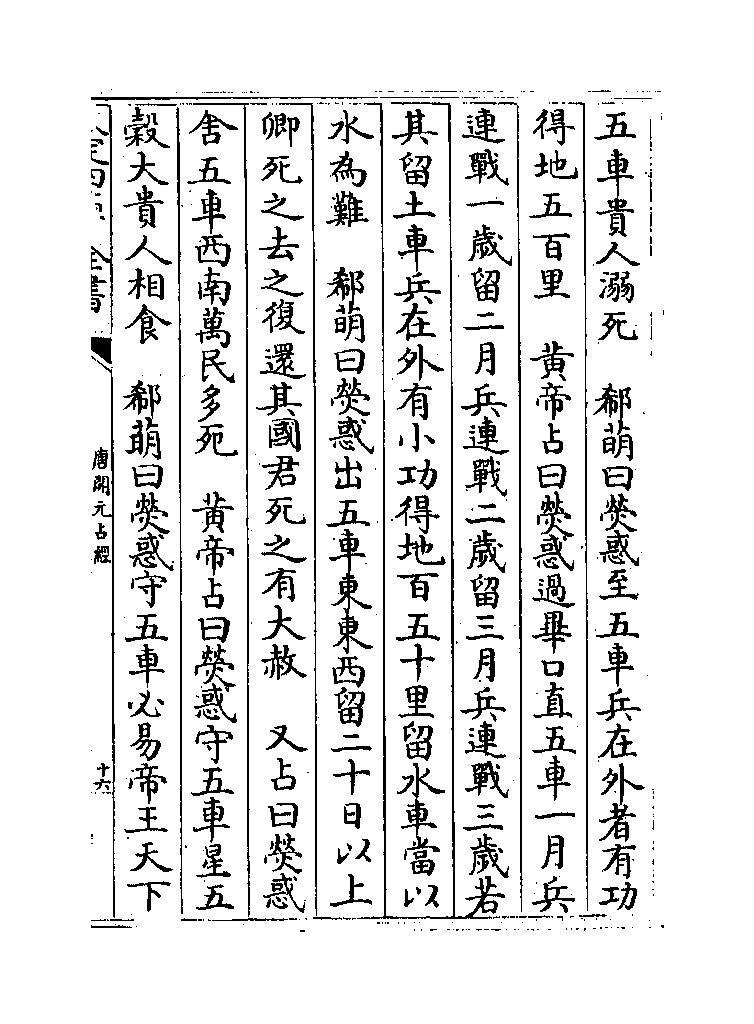 五車貴人溺死　郗萌曰熒惑至五車兵在外者有功
得地五百里　黄帝占曰熒惑過畢口直五車一月兵
連戰一歲留二月兵連戰二歲留三月兵連戰三歲若
其留土車兵在外有小功得地百五十里留水車當以
水為難　郗萌曰熒惑出五車東東西留二十日以上
卿死之去之復還其國君死之有大赦　又占曰熒惑
舍五車西南萬民多死　黄帝占曰熒惑守五車星五
穀大貴人相食　郗萌曰熒惑守五車必易帝王天下
全書
唐開元占經
十六